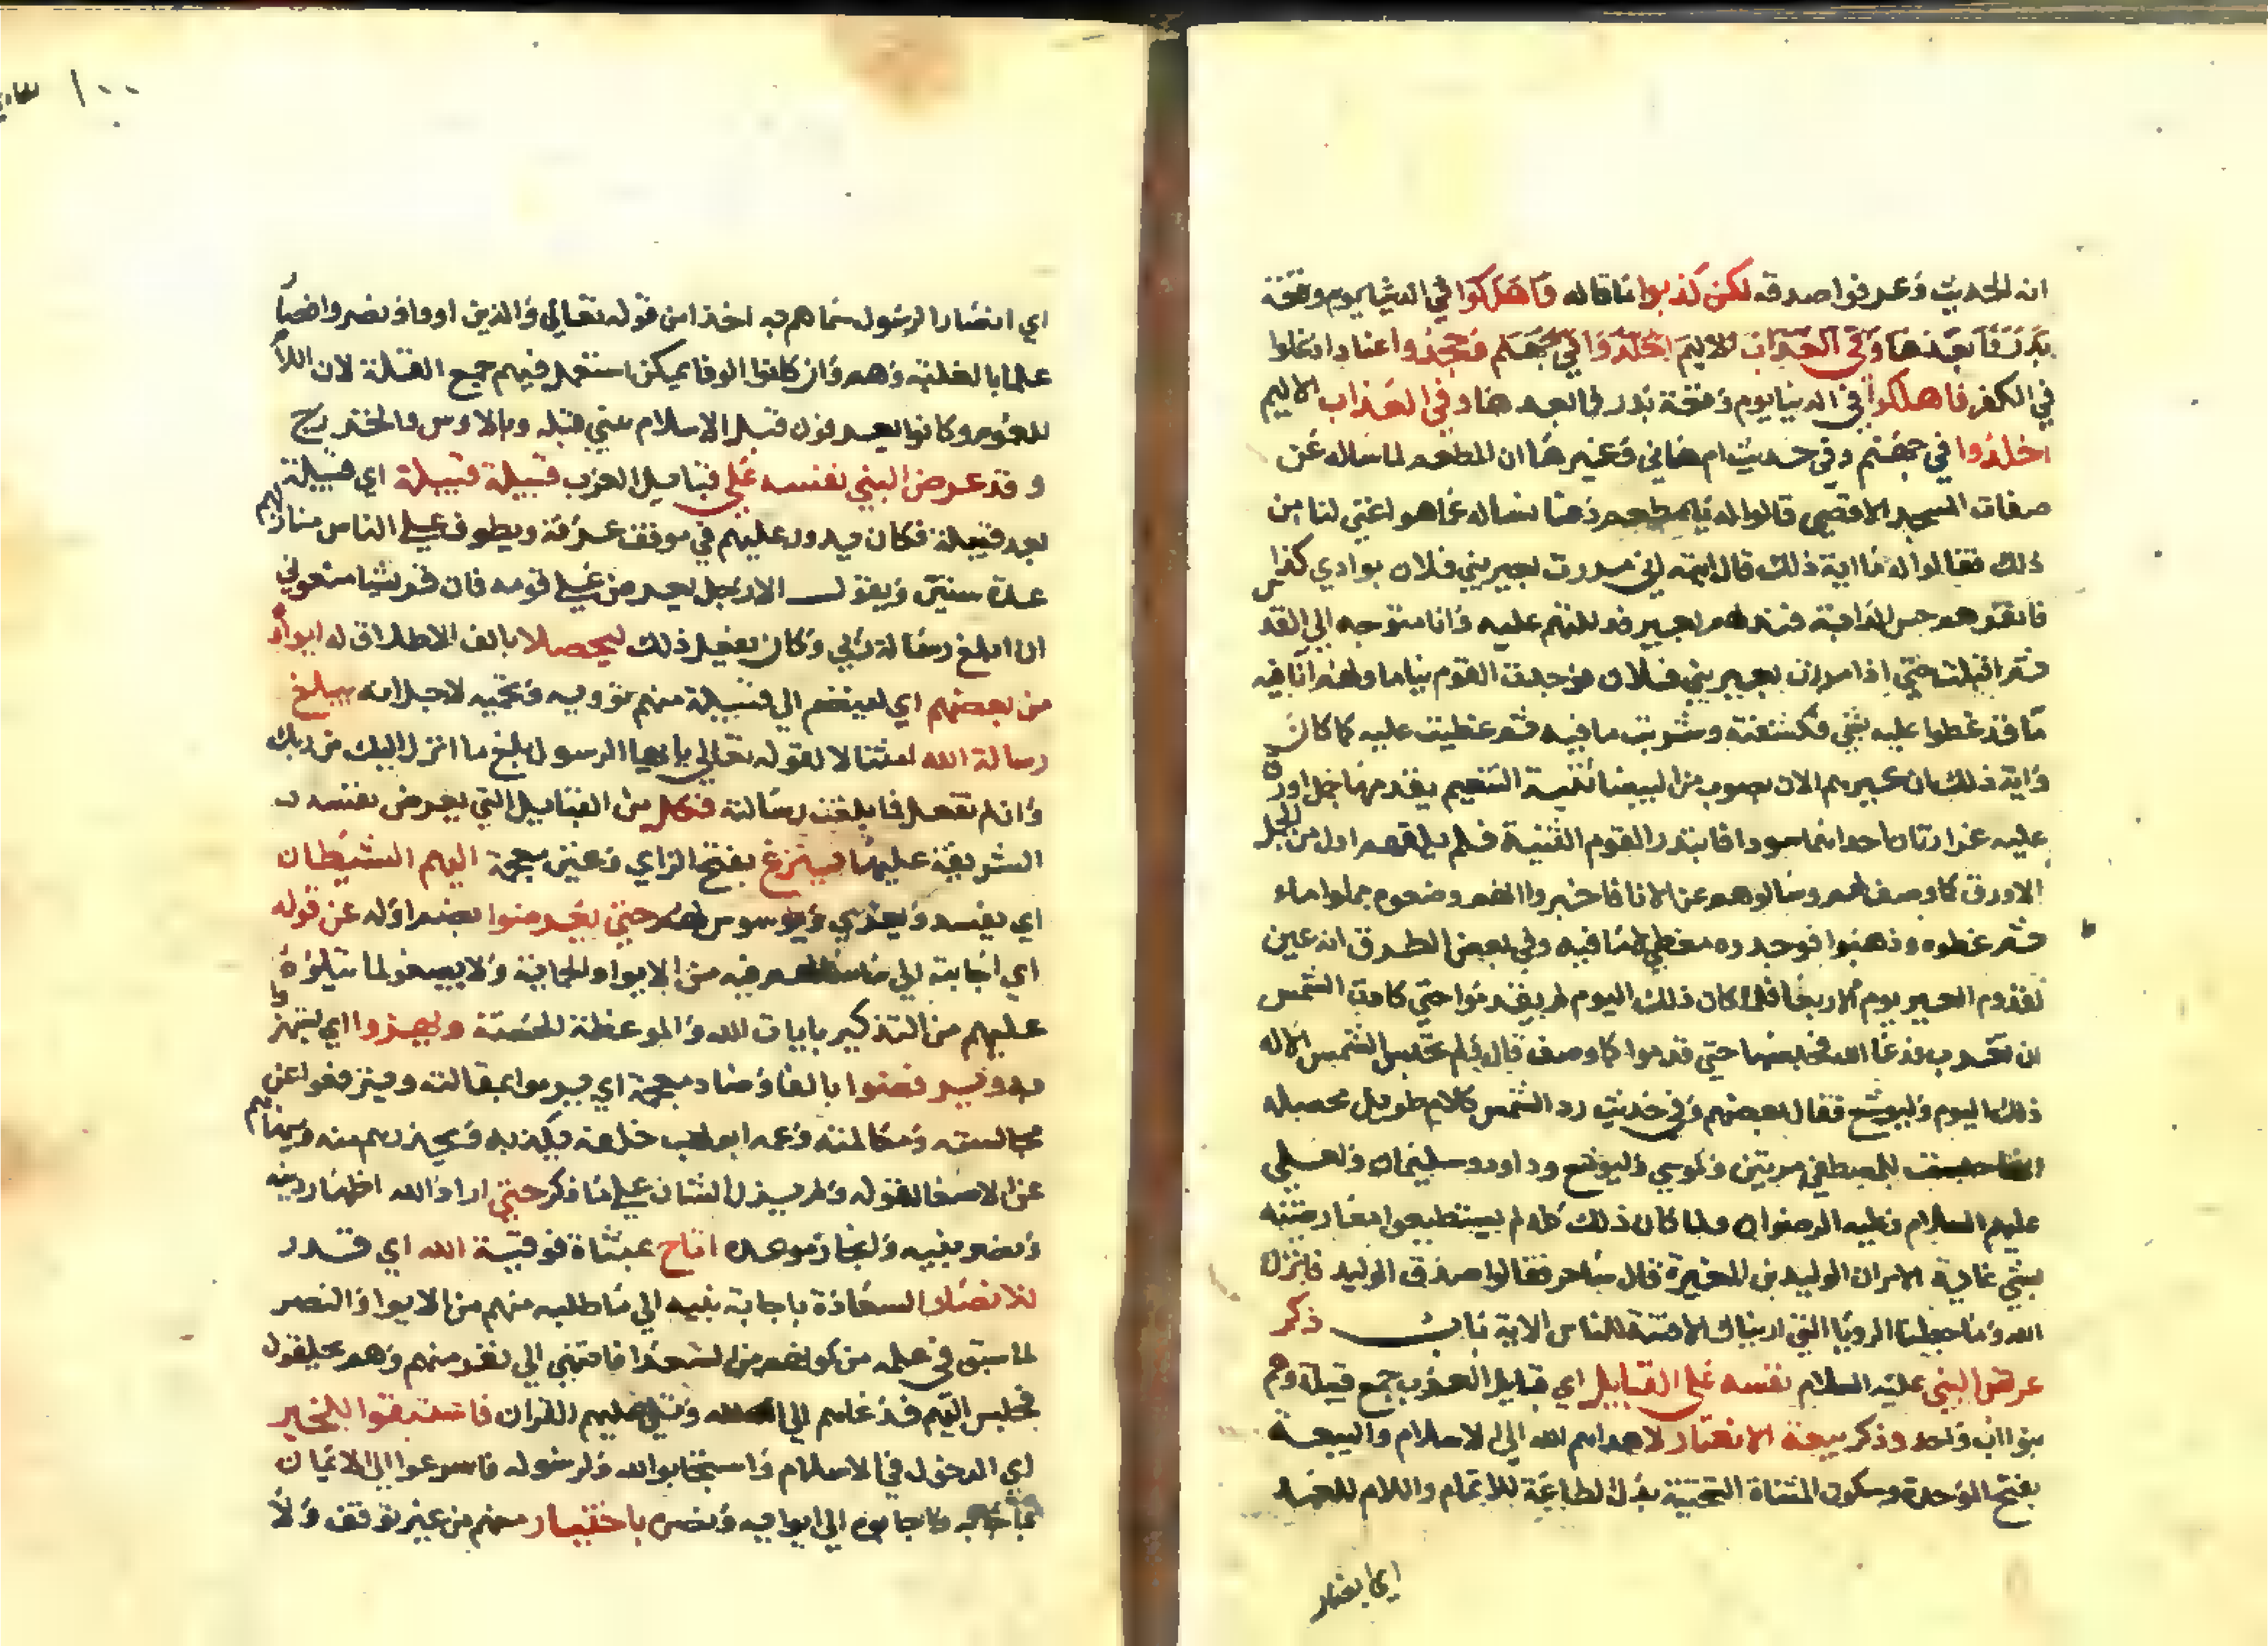 انه الحديث وعرفوا صدقه لكن كذبوا ما قاله فاهلكوا في الدنيا يوم وقعة
بدر فما بعدها وفي العذاب الاليم اخلدوا في جهنم فجحدوا عنادا وغلوا
في الكفر فاهلكوا في الدنيا يوم وقعة بدر فما بعدها وفي العذاب الاليم
اخلدوا في جهنم وفي حديث ام هاني وغيرها ان المطعم لما ساله عن
صفات المسجد الاقصى قالوا له يا مطعم دعنا نساله عما هو اغنى لنا من
ذلك فقالوا له ما اية ذلك قال ايته اني مررت بعير بني فلان بوادي كذا
فانفرهم حس الدابة فند لهم بعير فدللتهم عليه وانا متوجه الى القدس
ثم اقبلت حتى اذا مررت بعير بني فلان فوجدت القوم نياما ولهم انا فيه
ما قد غطوا عليه بشي فكشفته وشربت ما فيه ثم غطيت عليه كما كان
واية ذلك ان عيرهم الان بصوب من البيضا ثنية التنعيم يقدمها جمل اورق
عليه غرارتان احداهما سودا فابتدر القوم الثنية فلم يلقهم اول من الجمل
الاورق كما وصف لهم وسالوهم عن الانا فاخبروا انهم وضعوه مملوا ماء
ثم غطوه وذهبوا فوجدوه مغطى لا ما فيه وفي بعض الطرق انه عين
لقدوم العير يوم الاربعا فلما كان ذلك اليوم لم يقدموا حتى كادت الشمس
ان تغرب فدعا الله فحبسها حتى قدموا كما وصف قال ولم تحتبس الشمس الا له
ذلك اليوم وليوشع فقال بعضهم وفي حديث رد الشمس كلام طويل محصله
انها حبست للمصطفى مرتين ولموسى وليوشع وداود وسليمان ولعلي
عليهم السلام وعليه الرضوان ولما كان ذلك كله لم يستطيعوا معارضته
بشي غاية الامران الوليد بن المغيرة قال ساحر فقالوا صدق الوليد فانزل
الله وما جعلنا الرويا التي اريناك الا فتنة للناس الاية باب ذكر
عرض النبي عليه السلام نفسه على القبايل اي قبايل العرب جمع قبيلة وهم
بنو اب واحد وذكر بيعة الانصار لاهداهم الله الى الاسلام والبيعة
بفتح الموحدة وسكون المثناة التحتية بذل الطاعة للامام واللام للعهد
اي انصار
١٠٠
اي انصار الرسول سماهم به اخذا من قوله تعالى والذين اووا ونصروا فصار
علما بالغلبة وهم وان كانوا الوفا يمكن استعمل فيهم جمع القلة لان اللام
للعموم وكانوا يعرفون قبل الاسلام ببني قيلة وبالاوس والخزرج
وقد عرض النبي نفسه على قبايل العرب قبيلة قبيلة اي قبيلة
بعد قبيلة فكان يدور عليهم في موقف عرفة ويطوف على الناس منازلهم
عدة سنين ويقول الا رجل يعرض على قومه فان قريشا منعوني
ان ابلغ رسالة ربي وكان يفعل ذلك ليحصلا بالف الاطلاق له ايواء
من بعضهم اي لينضم الى قبيلة منهم تؤويه وتحميه لاجل انه يبلغ
رسالة الله امتثالا لقوله تعالى يا ايها الرسول بلغ ما انزل اليك من ربك
وان لم تفعل فما بلغت رسالته فكل من القبايل التي يعرض نفسه
الشريفة عليها ينزغ بفتح الزاي وغين معجمة اليهم الشيطان
اي يفسد ويغري ويوسوس لهم حتى يعرضوا بضم اوله عن قوله
اي اجابته الى ما سالهم فيه من الايواء والحماية ولا يصغوا لما يتلوه
عليهم من التذكير بايات الله والموعظة الحسنة ويهزوا اي يستهزوا
به ويرفضوا بالفا وضاد معجمة اي يرموا بمقالته ويترفعوا عن
مجالسته ومكالمته وعمه ابو لهب خلفه يكذبه ويحذرهم منه وينهاهم
عن الاصغا لقوله ولم يزل الشان على ما ذكر حتى اراد الله اظهار دينه
ونصر نبيه وانجاز موعده اتاح بمثناة فوقية الله اي قدر
للانصار السعادة باجابة نبيه الى ما طلبه منهم من الايوا والنصر
لما سبق في علمه من كونهم من السعدا فانتهى الى نفر منهم وهم يحلقون
فجلس اليهم فدعاهم الى الله وتلى عليهم القران فاستبقوا للخير
اي الدخول في الاسلام واستجابوا لله ولرسوله فاسرعوا الى الايمان
فاجابوه الى ايوايه ونصره باختيار منهم من غير توقف ولا